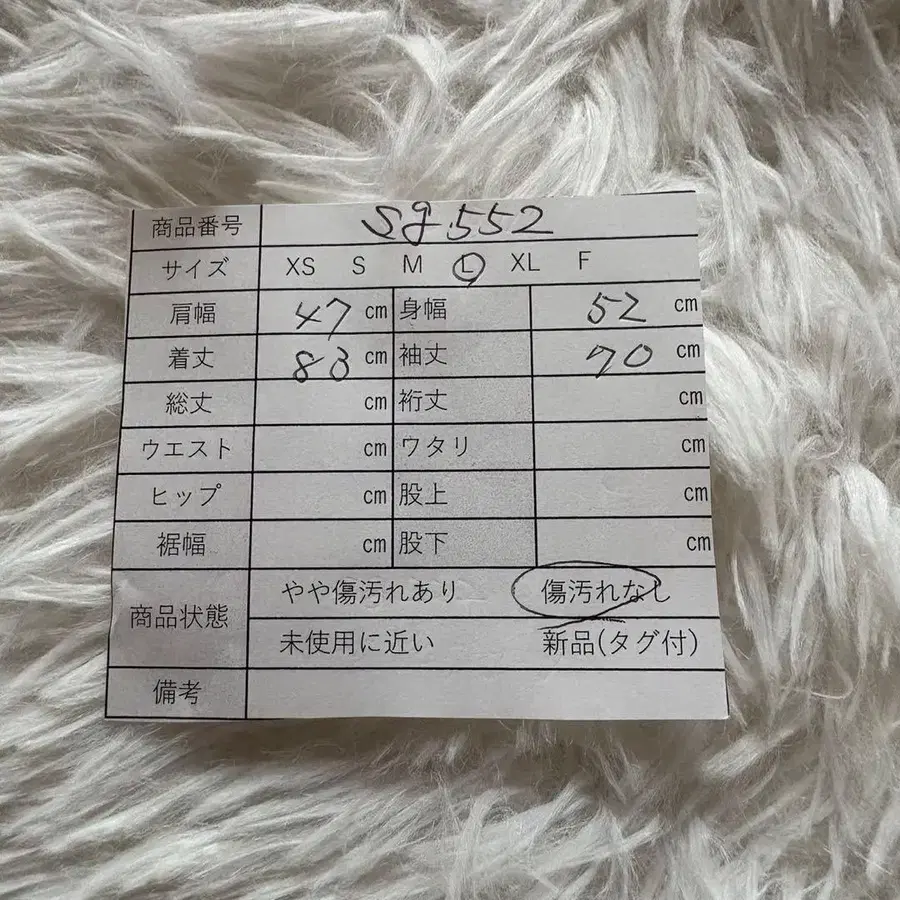 商品番号 sg552
サイズ XS S M L XL F
肩幅 47 cm 身幅 52 cm
着丈 83 cm 袖丈 70 cm
総丈 cm 裄丈 cm
ウエスト cm ワタリ cm
ヒップ cm 股上 cm
裾幅 cm 股下 cm
商品状態 やや傷汚れあり 傷汚れなし
未使用に近い 新品(タグ付)
備考